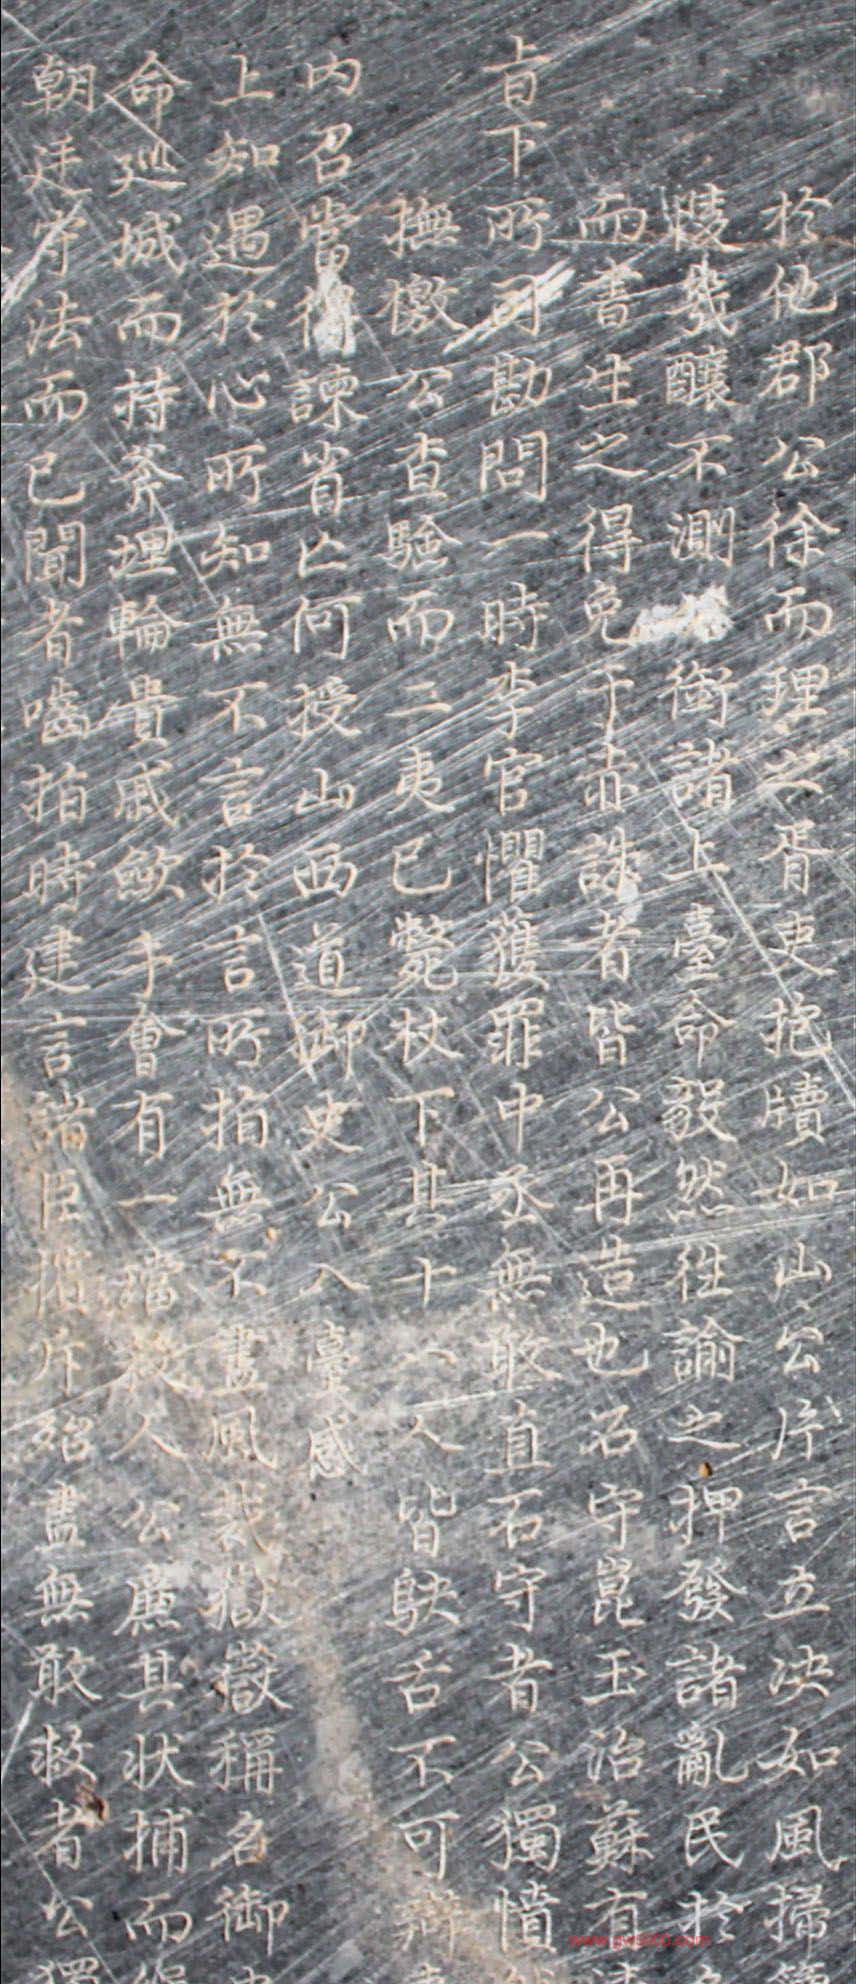 於他郡公徐而理之胥吏抱牘如山公片言立决如風掃
燧幾釀不測銜諸上臺命毅然往諭之押發諸亂民於
而書生之得免于赤誅者皆公再造也石守崑玉治蘇有
旨下所司勘問一時李官懼獲罪中丞無敢直石守者公獨憤
撫檄公查驗而三夷已斃杖下其十八人皆鴃舌不可辯
內召當得諫省亡何授山西道御史公入臺感
上知遇於心所知無不言於言所拍無不盡風裁嶽嶽稱名御
命巡城而持斧埋輪貴戚歛手會有一璫殺人公廉其狀捕而
朝廷守法而已聞者嚙指時建言諸臣擯斥殆盡無敢救者公獨
www.gu5000.com